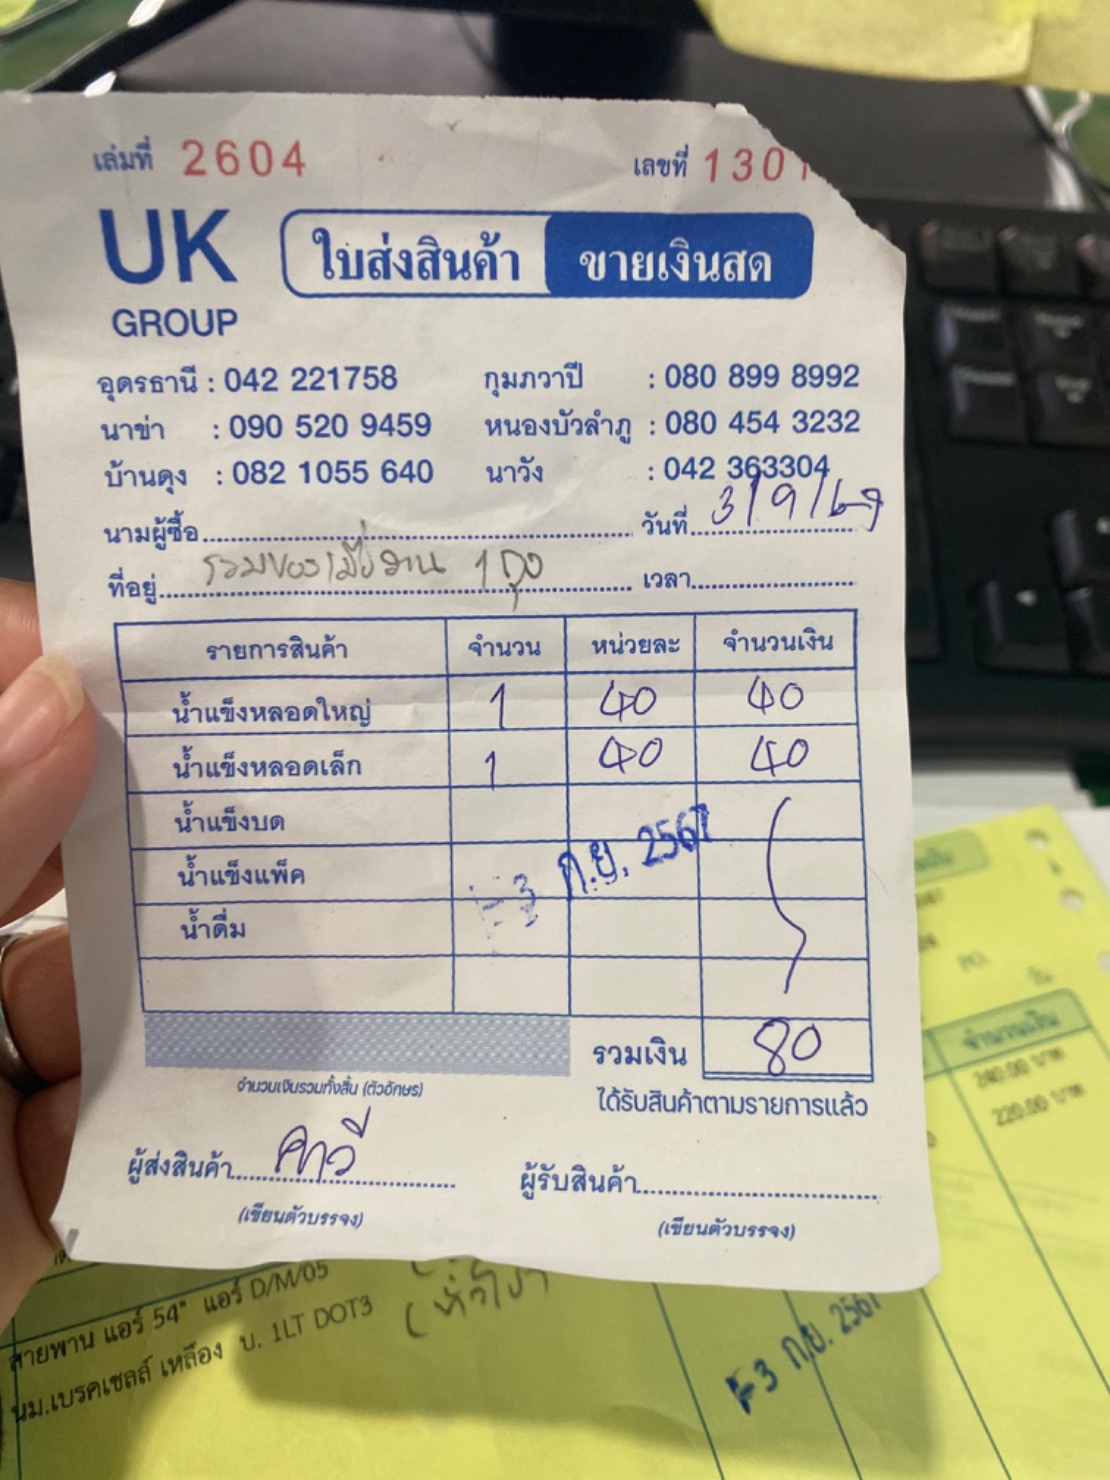 เล่มที่ 2604 เลขที่ 1301
UK GROUP
ใบส่งสินค้า ขายเงินสด
อุดรธานี : 042 221758 กุมภวาปี : 080 899 8992
นาข่า : 090 520 9459 หนองบัวลำภู : 080 454 3232
บ้านดุง : 082 1055 640 นาวัง : 042 363304
นามผู้ซื้อ วันที่ 3/9/67
ที่อยู่ 1 ถุง เวลา
รายการสินค้า จำนวน หน่วยละ จำนวนเงิน
น้ำแข็งหลอดใหญ่ 1 40 40
น้ำแข็งหลอดเล็ก 1 40 40
น้ำแข็งบด
น้ำแข็งแพ็ค
น้ำดื่ม
-3 ก.ย. 2567
รวมเงิน 80
จำนวนเงินรวมทั้งสิ้น (ตัวอักษร)
ได้รับสินค้าตามรายการแล้ว
ผู้ส่งสินค้า คาวี ผู้รับสินค้า
(เขียนตัวบรรจง) (เขียนตัวบรรจง)
จำนวนเงิน
240.00 บาท
220.00 บาท
สายพาน แอร์ 54" แอร์ D/M/05
นม.เบรคเชลล์ เหลือง บ. 1LT DOT3
-3 ก.ย. 2567